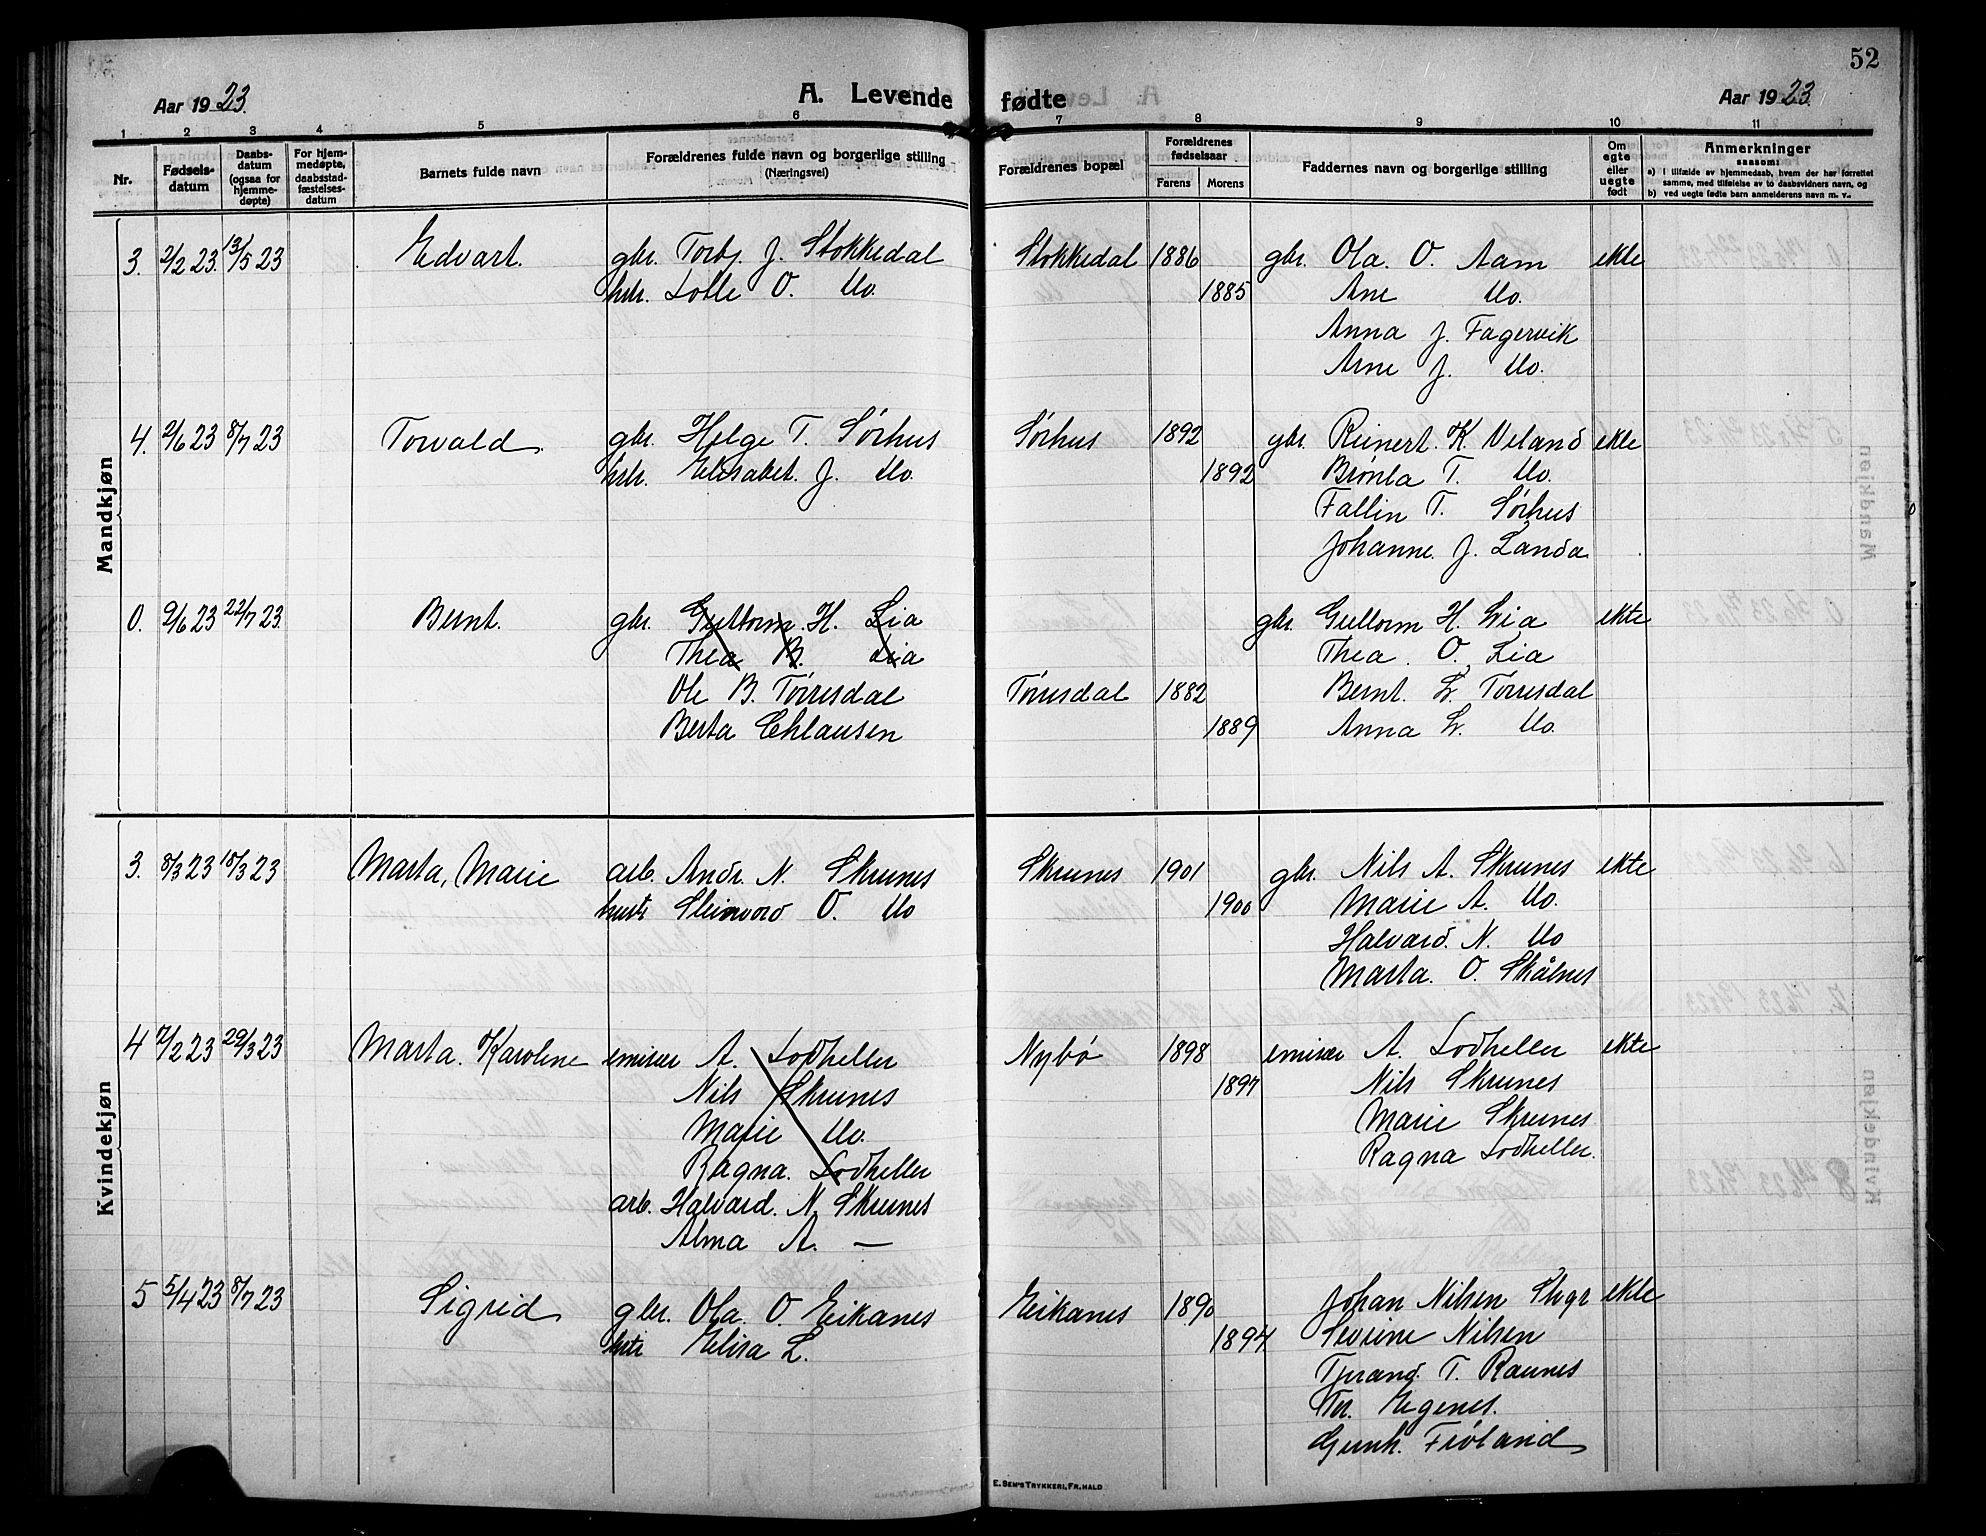 52
Aar 1923. A. Levende fødte Aar 1923.
1 2 3 4 5 6 7 8 9 10 11
Nr. Fødselsdatum Daabsdatum (ogsaa for hjemmedøpte) For hjemmedøpte, daabsstadfæstelsesdatum Barnets fulde navn Forældrenes fulde navn og borgerlige stilling (Næringsvei) Forældrenes bopæl Forældrenes fødselsaar Farens Morens Faddernes navn og borgerlige stilling Om egte eller uegte født Anmerkninger saasom: a) i tilfælde av hjemmedaab, hvem der har forrettet samme, med tilføielse av to daabsvidners navn, og b) ved uegte fødte barn anmelderens navn m. v..
Mandkjøn
3. 2/2 23. 13/5 23 Edvart. gbr. Torbj. J. Stokkedal Stokkedal 1886 gbr. Ola. O. Aam ekte
hstr. Lotte O. do. 1885 Ane do.
Anna J. Fagervik
Arne J. do.
4. 2/6 23 8/7 23 Torvald. gbr. Helge T. Sørhus Sørhus 1892 gbr. Reinert. K. Veland ekte
hstr. Elisabet. J. do. 1892 T. do.
T. Sørhus
Johanne. J. Landa
0. 9/6 23 22/7 23. Bernt. gbr. Guttorm. H. Lia gbr. Guttorm H. Lia ekte
Thea B. Lia Thea. O. Lia
Ole B. Tørresdal Tørresdal 1882 Bernt. L. Tørresdal
Berta Chlausen 1889 Anna L. do.
Kvindekjøn
3. 8/3 23 18/3 23 Marta, Marie arb. Andr. N. Skrunes Skrunes 1901 gbr. Nils A. Skrunes ekte
hustr Steinvord O. do 1900 Marie A. do.
Halvard. N. do
Marta. O. Skålnes
4 7/2 23 29/3 23 Marta. Karoline emisær A. Lodheller Nybø 1898 emisær A. Lodheller ekte
Nils Skrunes 1897 Nils Skrunes
Marie do. Marie Skrunes
Ragna. Lodheller Ragna Lodheller.
arb. Halvard. N. Skrunes
Alma A. —
5 5/4 23 8/7 23 Sigrid gbr. Ola. O. Eikanes Eikanes 1890 Johan Nilsen ekte
hstr Elisa L. 1894 Severine Nilsen
T. Raunes
Tor. Egenes.
Gunh. Frøland
E. SEM'S TRYKKERI, FR.HALD